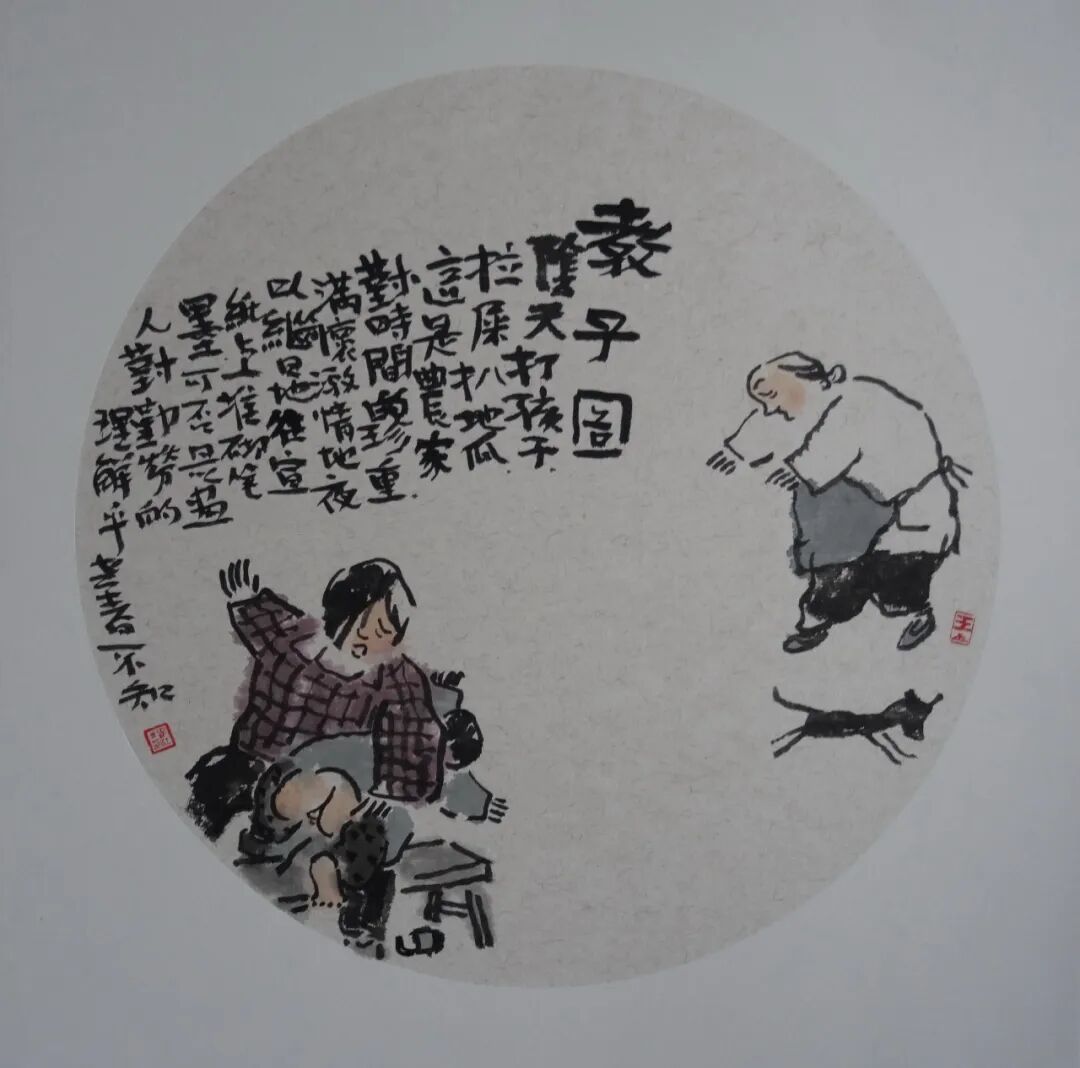 教子圖
陰天打孩子
拉屎扒地瓜
這是農家
對時間的珍重
滿懷激情地夜
以繼日地往宣
紙上堆砌筆
墨可不是畫
人對勤勞的
理解乎
一不知
王